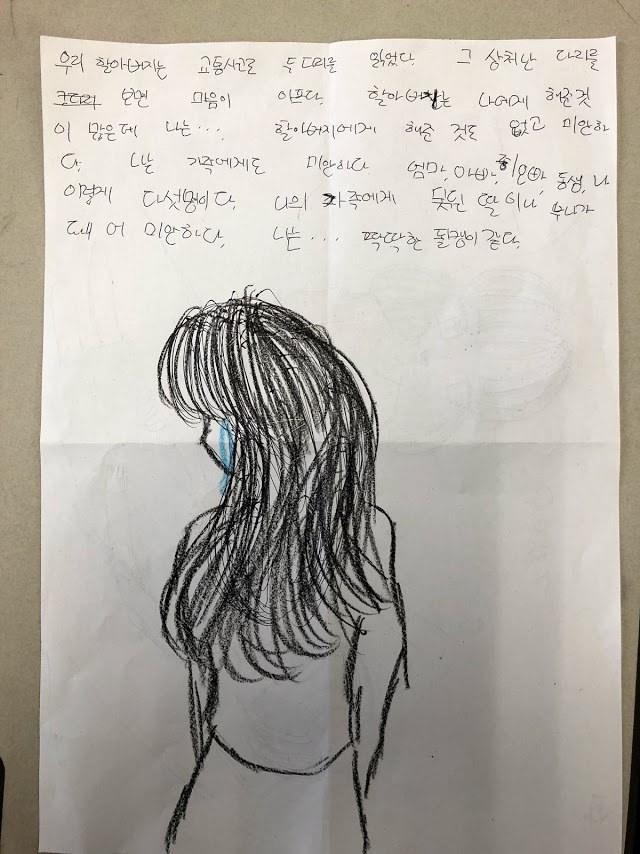 우리 할아버지는 교통사고로 두 다리를 잃었다. 그 상처난 다리를
보면 마음이 아프다. 할아버지는 나에게 해준것
이 많은데 나는... 할아버지에게 해준 것도 없고 미안하
다. 나는 가족에게도 미안하다 엄마, 아빠, 동생, 나
이렇게 다섯명이다. 나의 가족에게 못된 딸이나
미안하다. 나는... 딱딱한 돌갱이 같다.